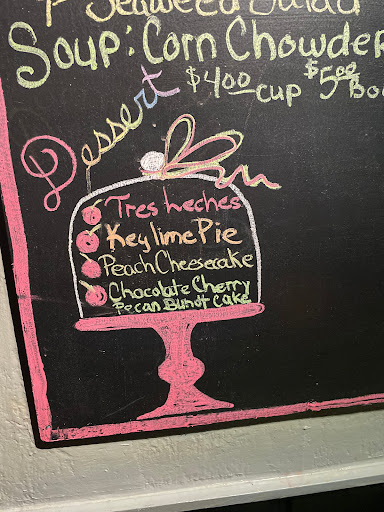 Seaweed Salad
Soup: Corn Chowder
$4.00 cup $5.00
Dessert
Tres Leches
Key lime Pie
Peach Cheesecake
Chocolate Cherry
Pecan Bundt Cake